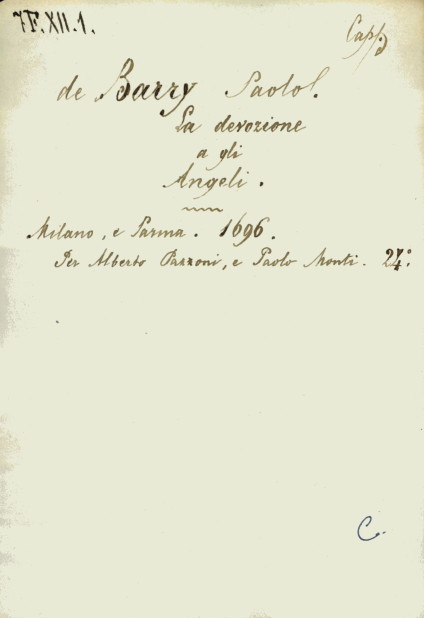 7F.XII.1.
de Barry Paolo.
La devozione
a gli
Angeli.
Milano, e Parma. 1696.
Per Alberto Pazzoni, e Paolo Monti. 24.°
C.